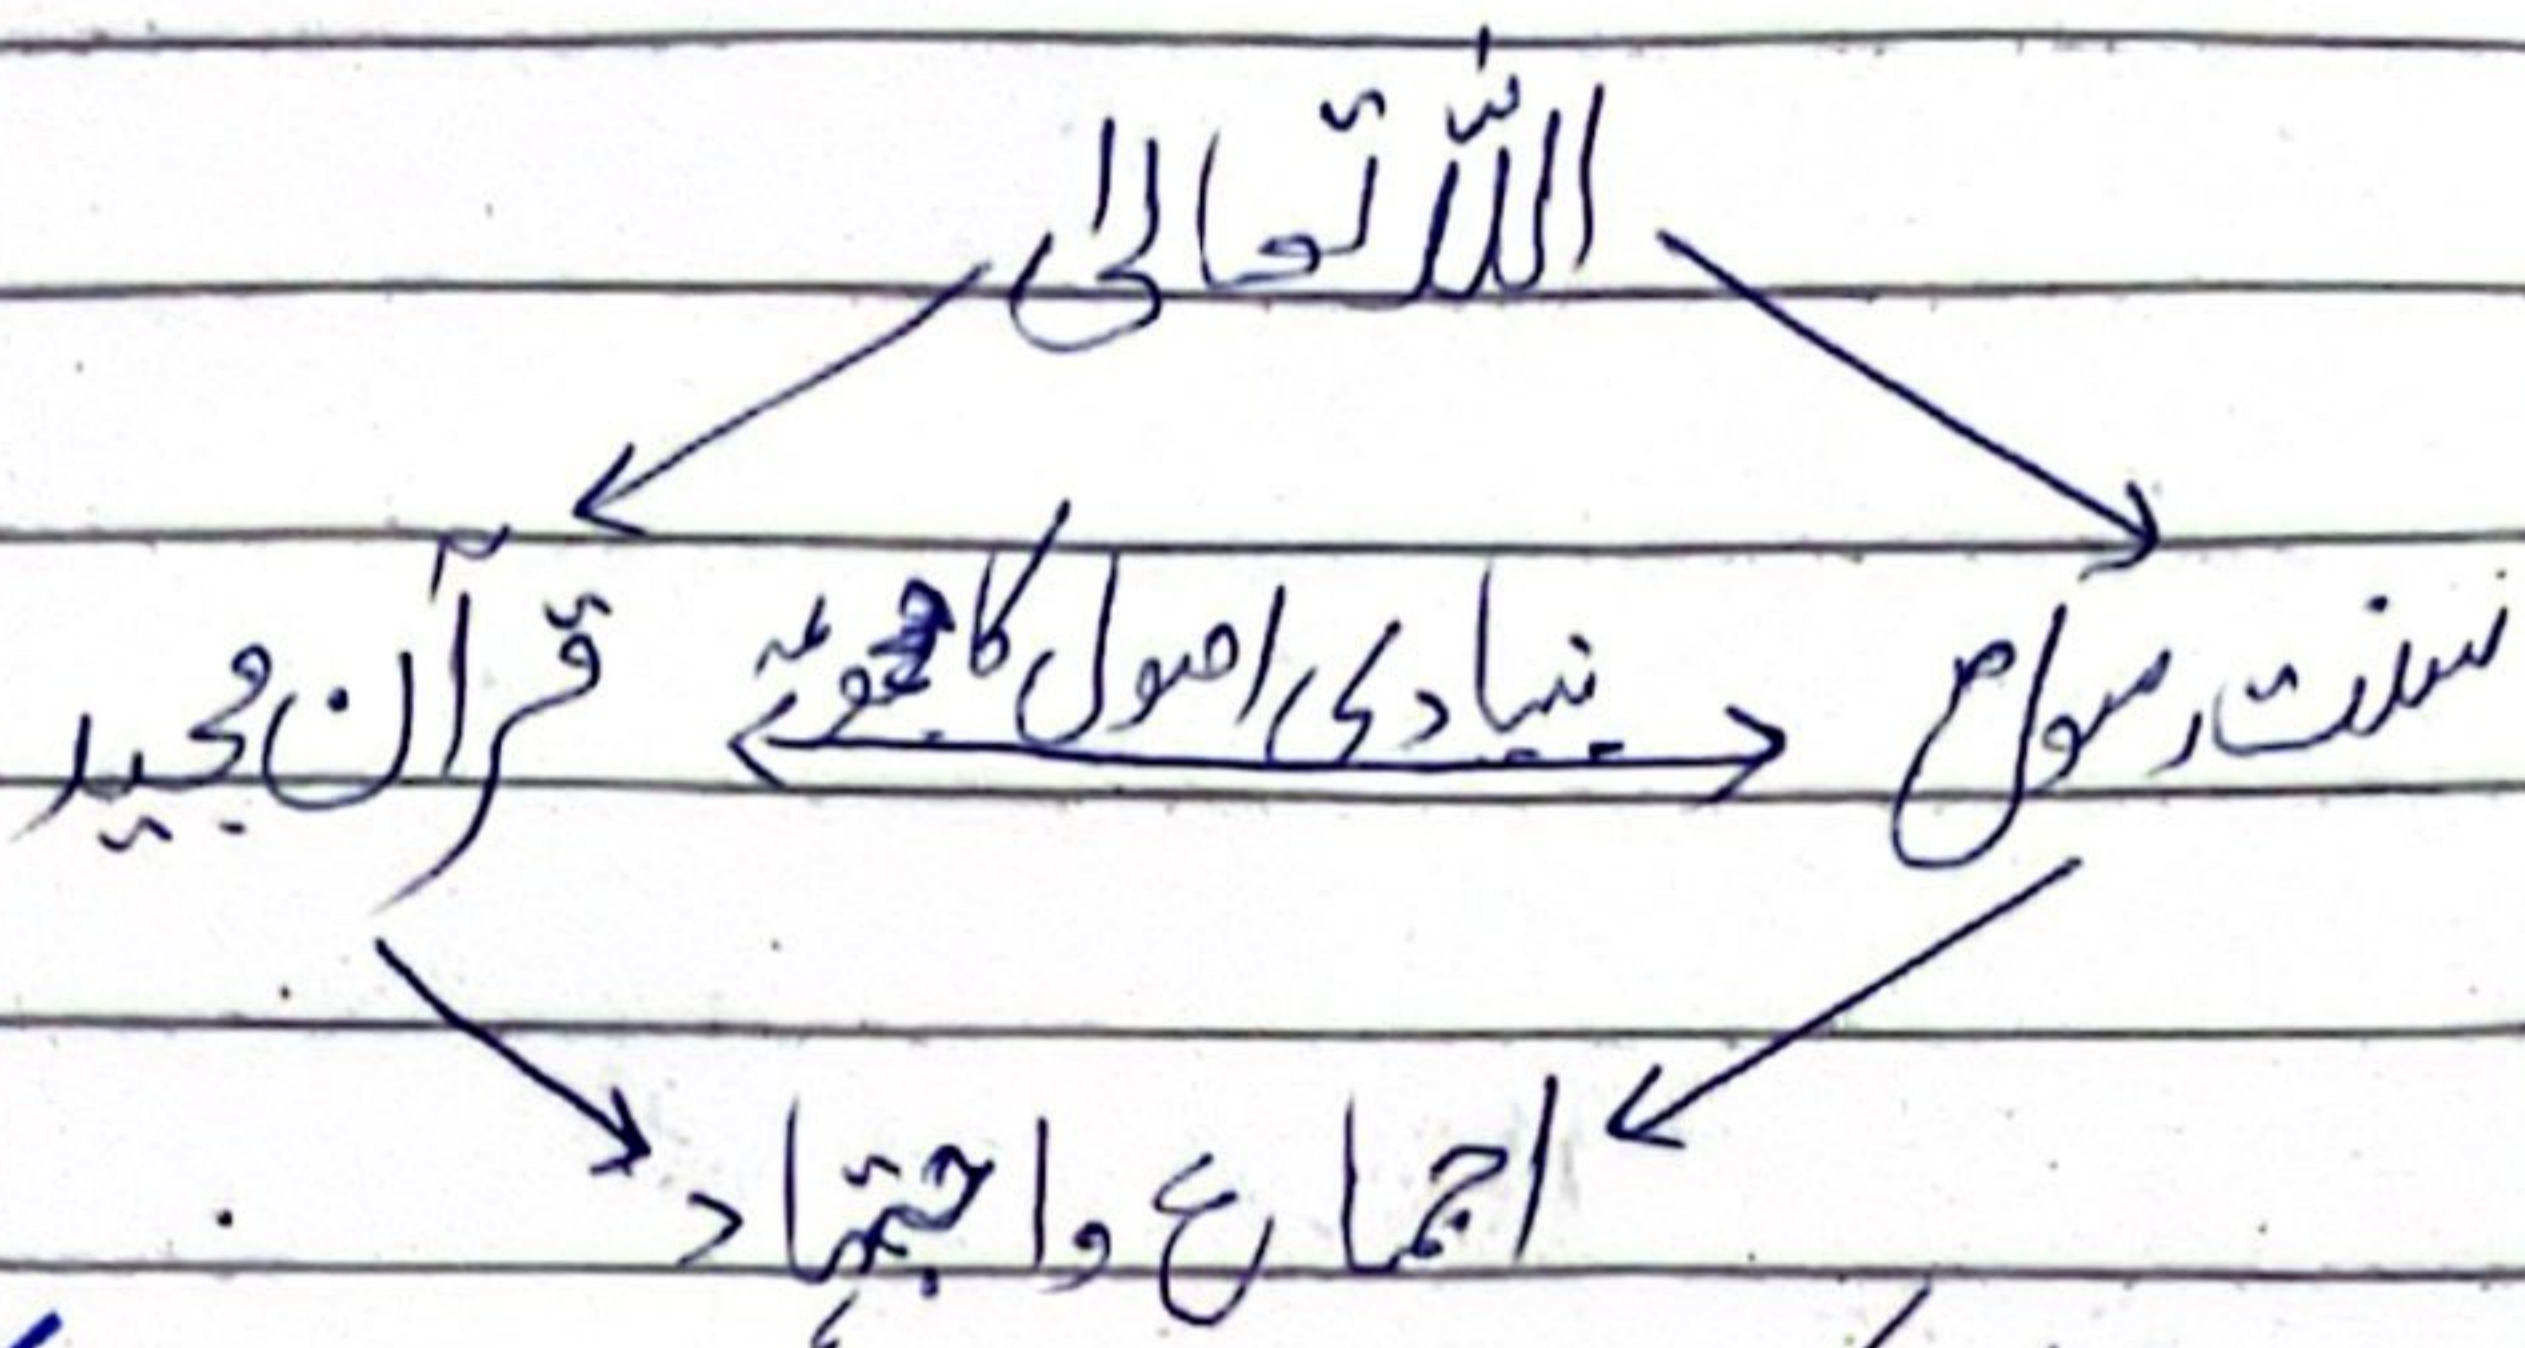 اللہ تعالیٰ
سنت رسولؐ بنیادی اصول کا مجموعہ قرآن مجید
اجماع واجتہاد